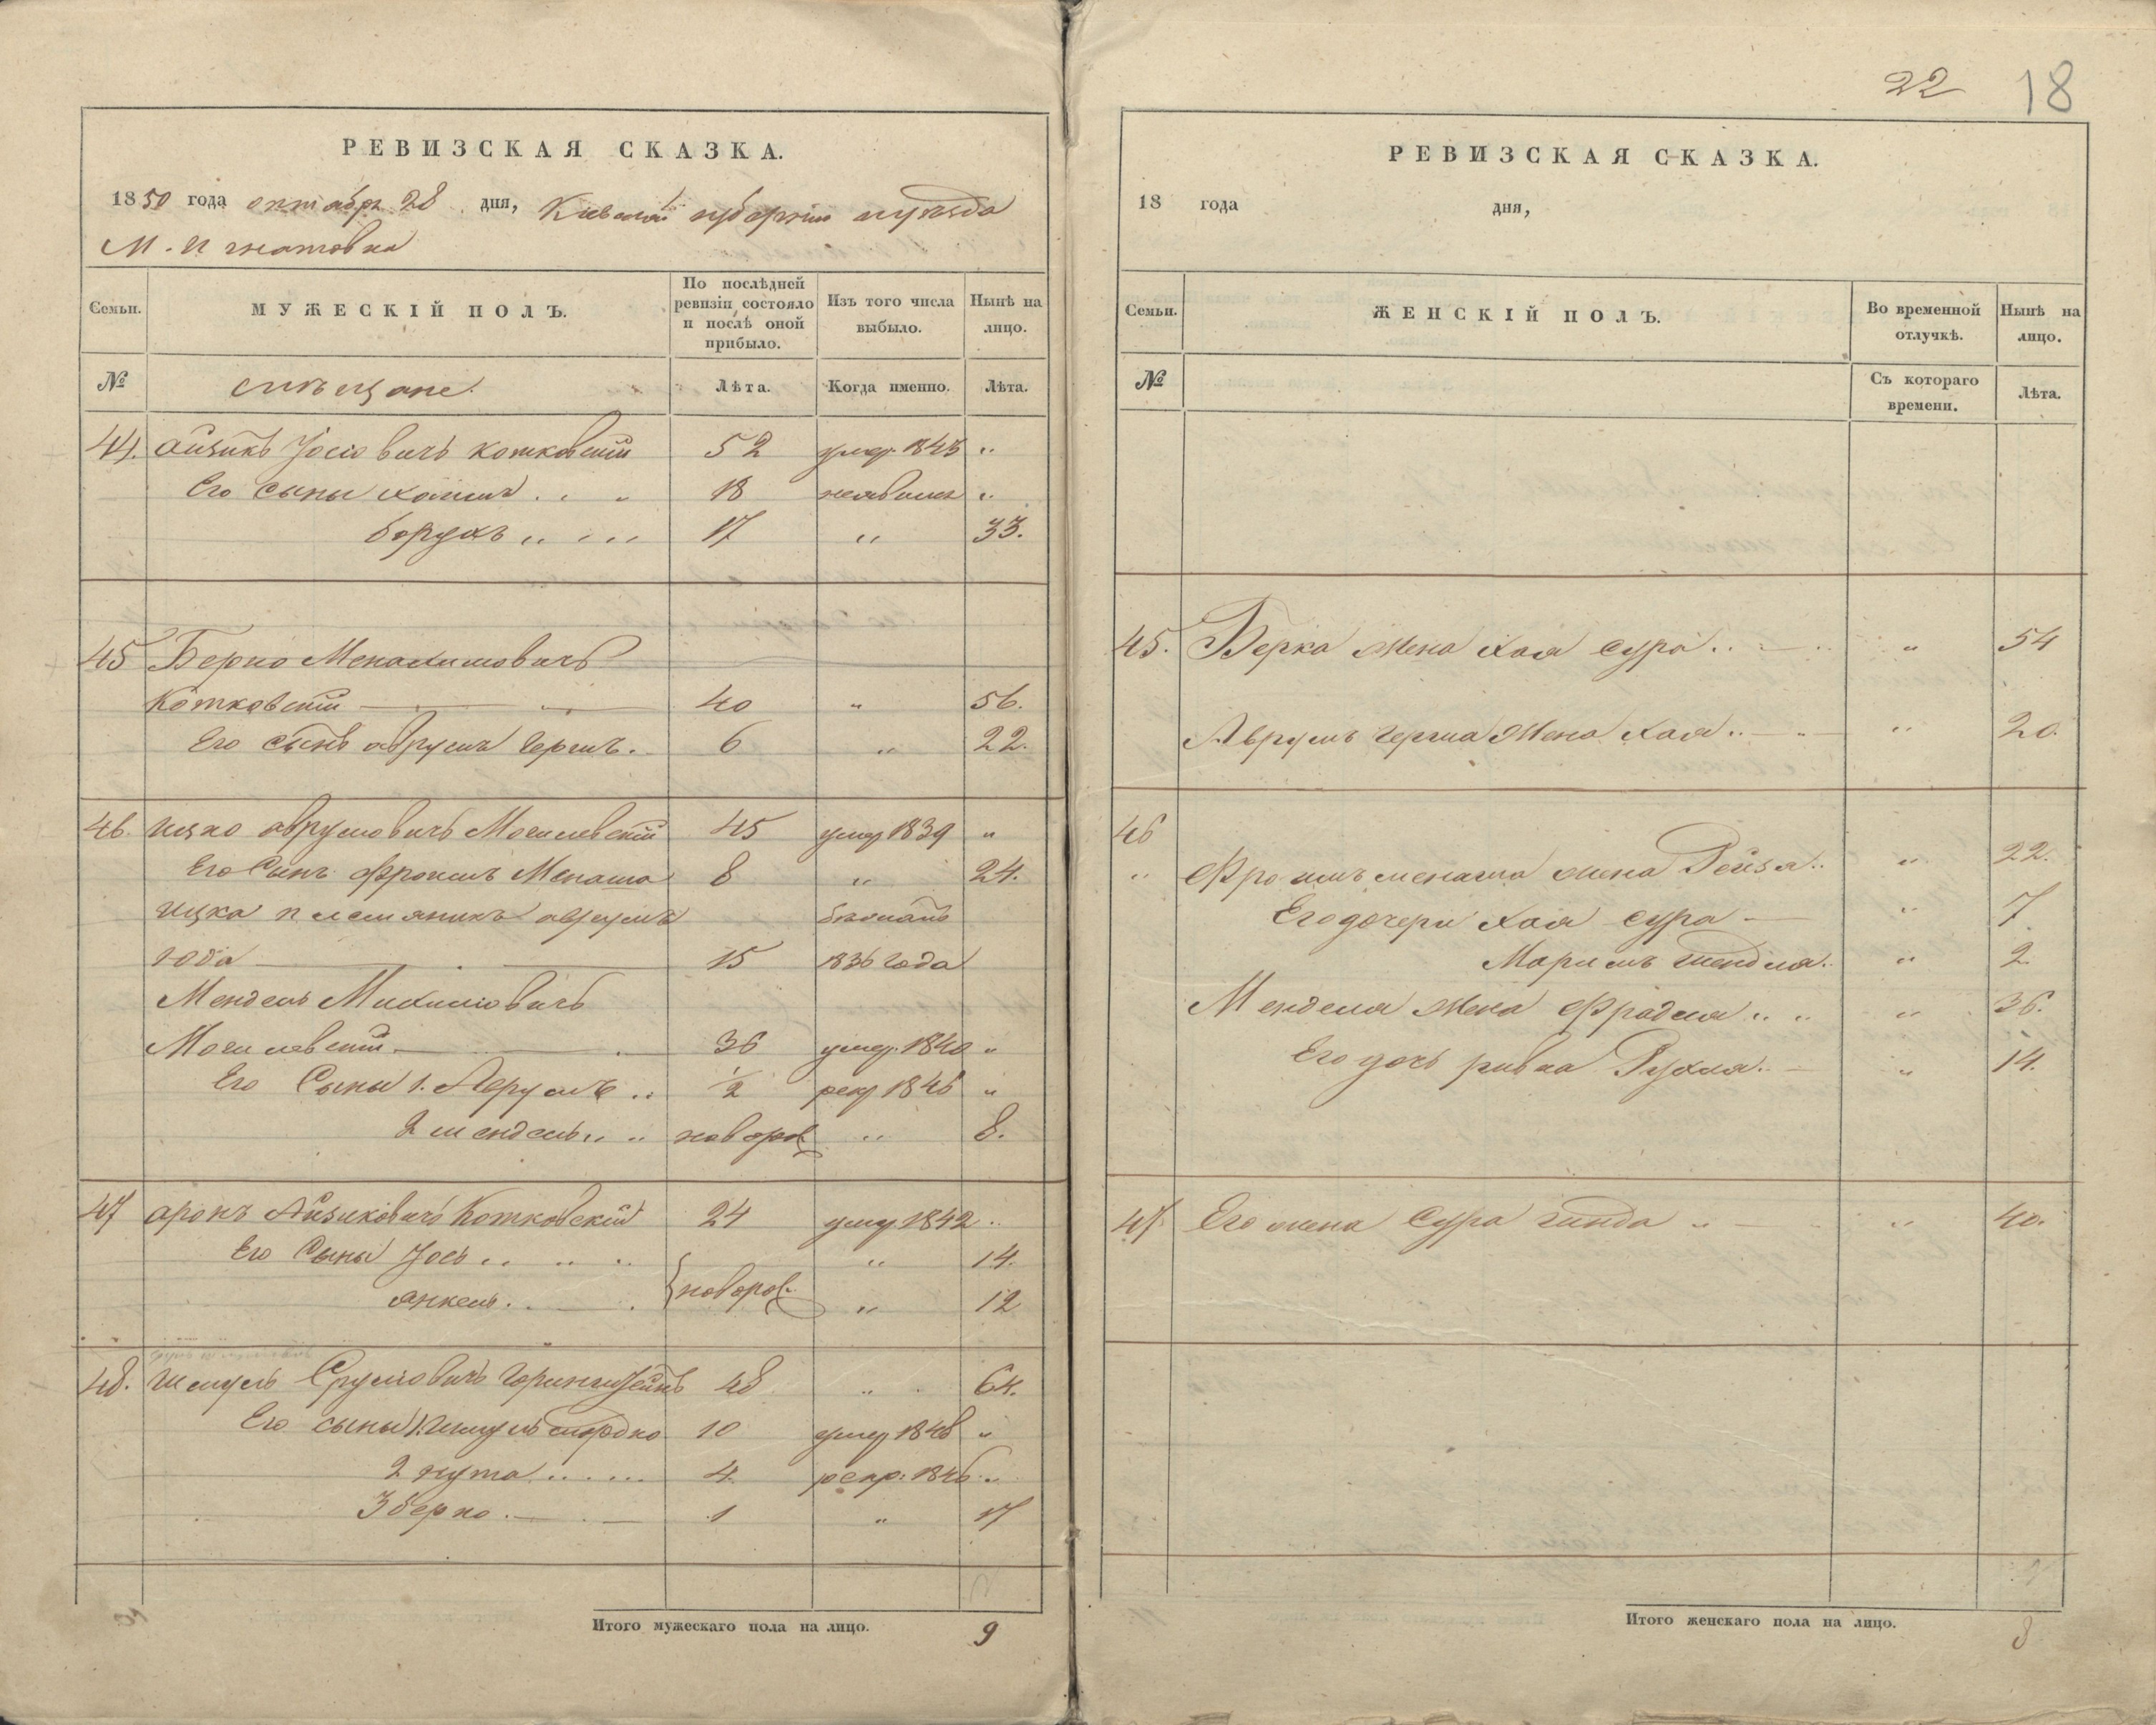 22 18
РЕВИЗСКАЯ СКАЗКА.
1850 года октября 28 дня, Киевской губернии и уезда
М. Игнатовка
Семьи. МУЖЕСКІЙ ПОЛЪ. По послѣдней ревизіи состояло и послѣ оной прибыло. Изъ того числа выбыло. Нынѣ на лицо.
№ Лѣта. Когда именно. Лѣта.
44. Айзикъ Іосіовичъ Котковскій 52 умер. 1843 "
Его сыны Хаимъ 18 неявился "
Борухъ 17 " 33.
45 Берко Менахимовичъ
Котковскій 40 " 56.
Его сынъ Аврумъ Гершъ. 6 " 22.
46. Ицко Аврумовичъ Могилевскій 45 умер 1839 "
Его Сынъ Фроимъ Менаша 8 " 24.
Ицка племяникъ Аврумъ
15 1836 года
Мендель Михиліовичъ
Могилевскій 36 умер. 1840 "
Его Сыны 1. Аврумъ 1/2 рекр 1846 "
2 Шендель новорож " 8.
47 Аронъ Айзиковичъ Котковскій 24 умер 1842 "
Его Сыны Іось " 14.
Янкель. новорож. " 12
48. Шмуль Сруліовичъ 48 " 64.
Его сыны 1. Шмуль Мордко 10 умер 1848 "
2 Нута 4 рекр: 1846 "
3 Берко 1 " 17
Итого мужескаго пола на лицо. 9
РЕВИЗСКАЯ СКАЗКА.
18 года дня,
Семьи. ЖЕНСКІЙ ПОЛЪ. Во временной отлучкѣ. Нынѣ на лицо.
№ Съ котораго времени. Лѣта.
45. Берка жена Хая Сура " 54
Аврумъ Герша жена Хая " 20.
46
" Фроимъ Менаша жена Рейзя " 22.
Его дочери Хая Сура " 7
Маримъ Шендля " 2
Менделя жена Фрадля " 36.
Его дочь Ривка Рухля " 14.
47. Его жена Сура Гинда " 40.
Итого женскаго пола на лицо. 8